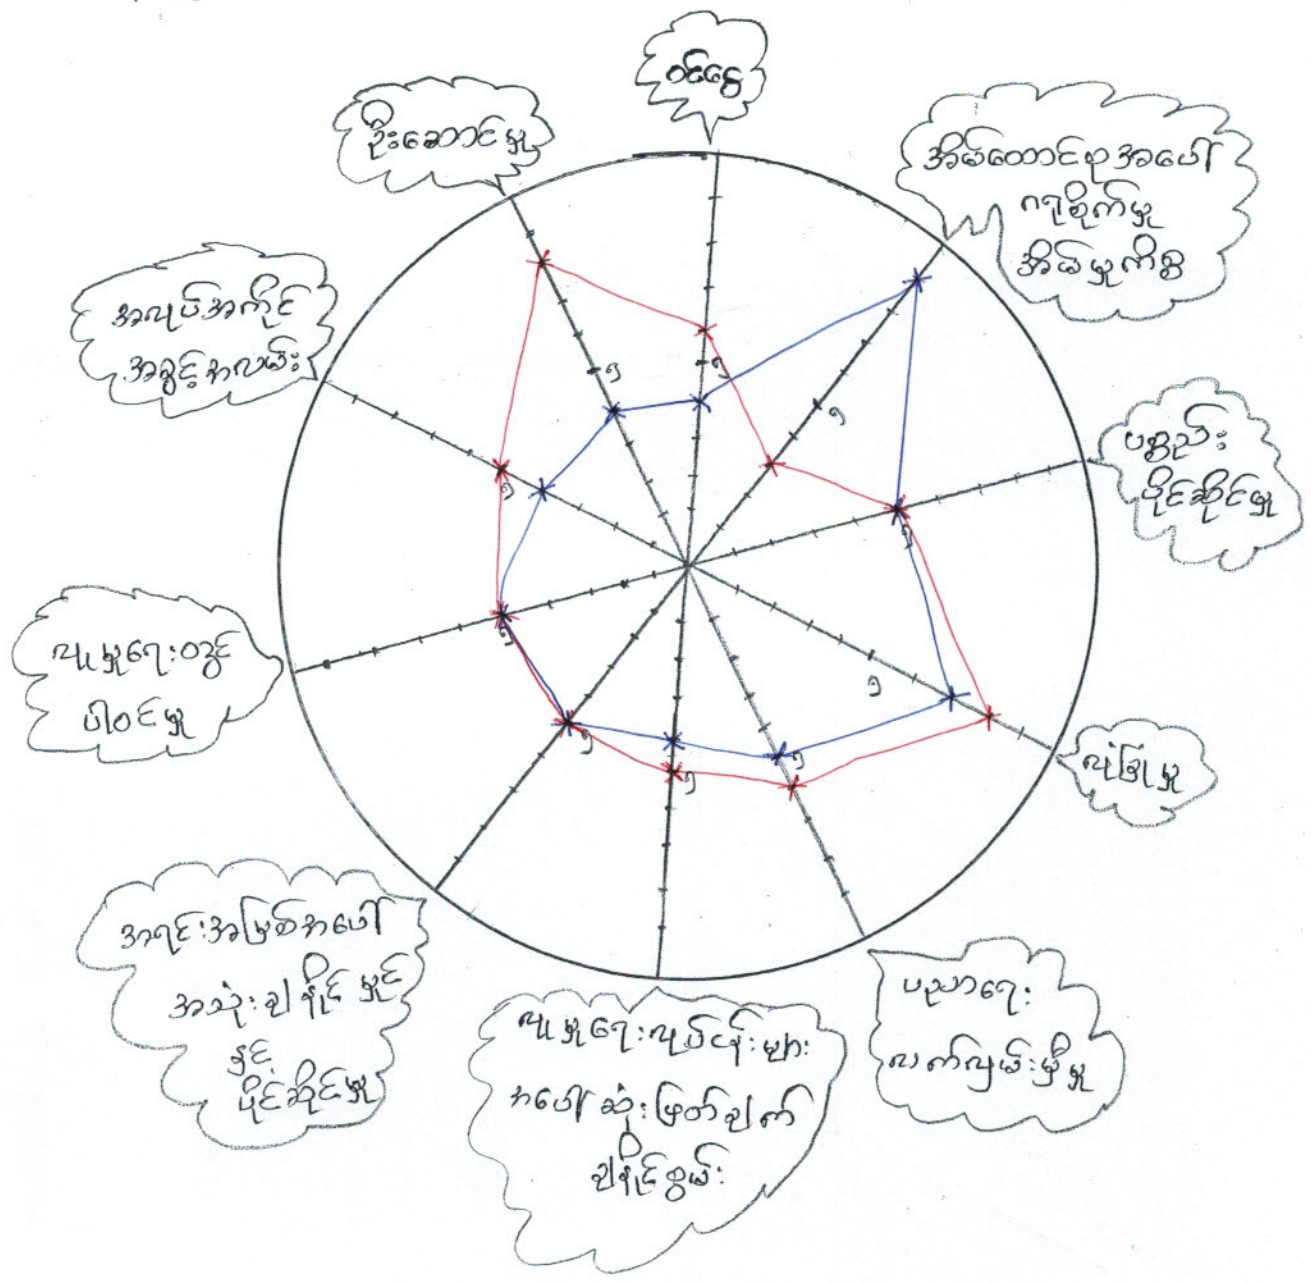 ဝင်ငွေ
အိမ်ထောင်စုအပေါ်
ဂရုစိုက်မှု
အိမ်မှုကိစ္စ
ပစ္စည်း
ပိုင်ဆိုင်မှု
လုံခြုံမှု
ပညာရေး
လက်လှမ်းမှီမှု
လူမှုရေးလုပ်ငန်းများ
အပေါ်ဆုံးဖြတ်ချက်
ချနိုင်စွမ်း
အရင်းအမြစ်အပေါ်
အသုံးချနိုင်မှုင်
နှင့်
ပိုင်ဆိုင်မှု
လူမှုရေးဝဒွင်
ပါဝင်မှု
အလုပ်အကိုင်
အခွင့်အလမ်း
ဦးဆောင်မှု
၅
၅
၅
၅
၅
၅
၅
၅
၅
၅